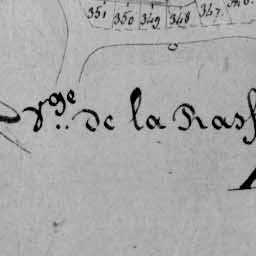 351 350 349 348 347
Vge de la Rash